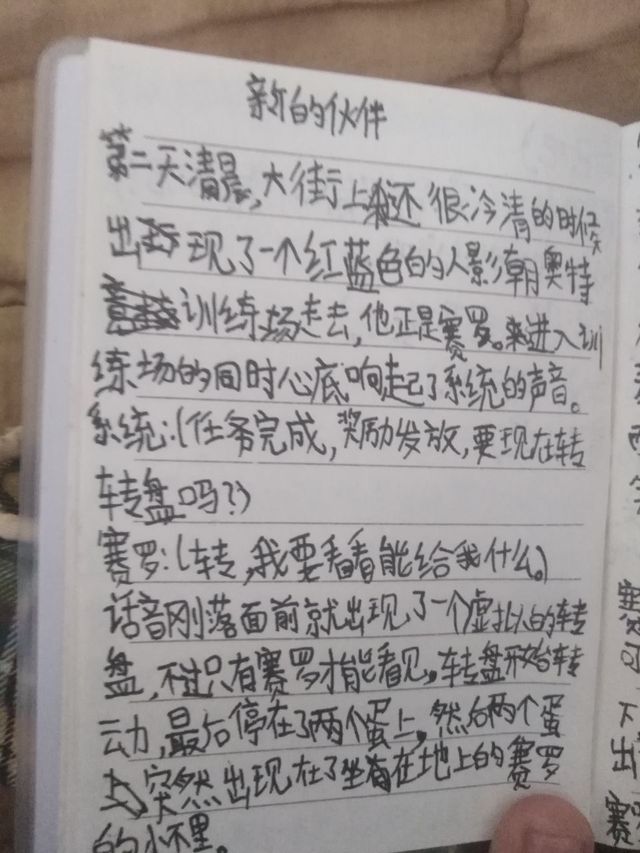 新的伙伴
第二天清晨,大街上还很冷清的时候
出现了一个红蓝色的人影朝奥特
训练场走去,他正是赛罗。来进入训
练场的同时心底响起了系统的声音。
系统:(任务完成,奖励发放,要现在转
转盘吗?)
赛罗:(转,我要看看能给我什么。)
话音刚落面前就出现了一个虚拟的转
盘,不过只有赛罗才能看见。转盘开始转
动,最后停在了两个蛋上。然后两个蛋
突然出现在了坐在地上的赛罗
的小怀里。